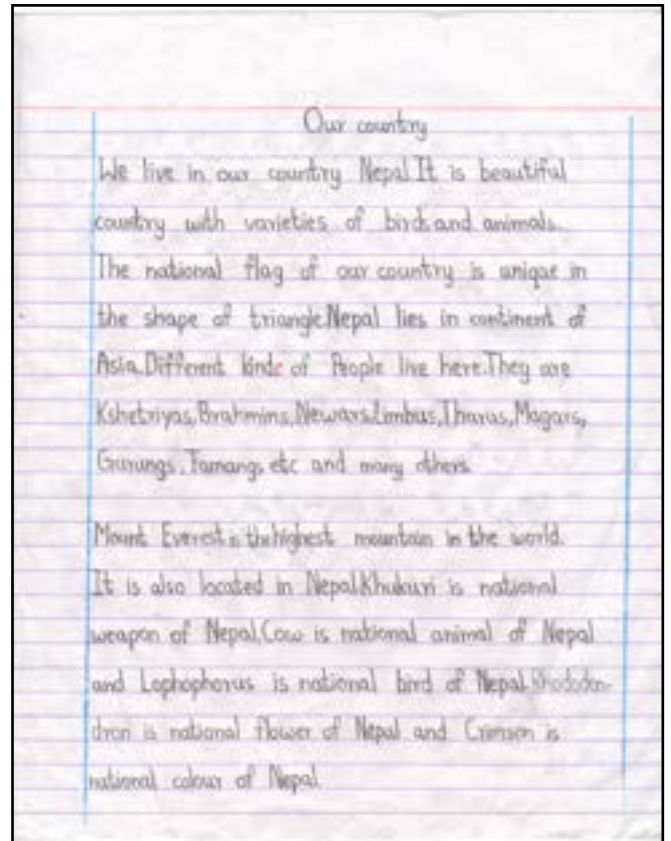 Our country
We live in our country Nepal.It is beautiful
country with varieties of birds and animals.
The national flag of our country is unique in
the shape of triangle.Nepal lies in continent of
Asia.Different kinds of People live here.They are
Kshetriyas,Brahmins,Newars,Limbus,Tharus,Magars,
Gurungs,Tamangs etc and many others.
Mount Everest is the highest mountain in the world.
It is also located in Nepal.Khukuri is national
weapon of Nepal.Cow is national animal of Nepal
and Lophophorus is national bird of Nepal.Rhododen-
dron is national flower of Nepal and Crimson is
national colour of Nepal.